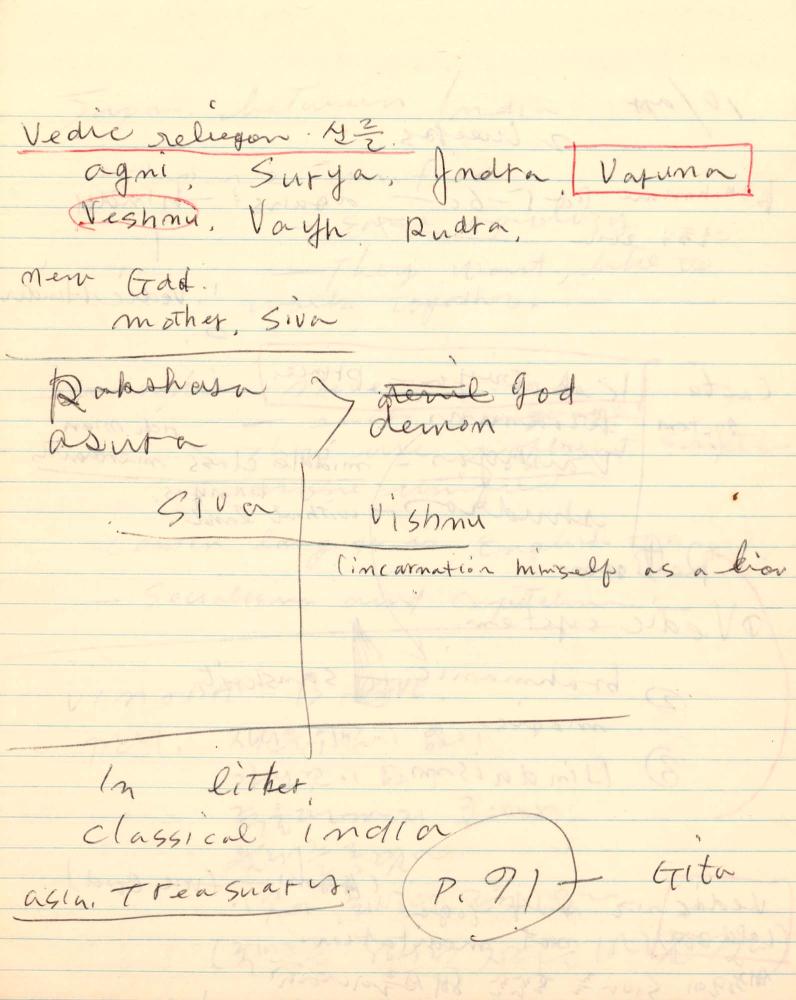 Vedic religon. 신들.
agni, Surya, Indra, Varuna
Veshnu, Vayh Rudra,
new God.
mother, Siva
Rakshasa
asura
god
demon
Siva Vishnu
(incarnation himself as a lion
In lither,
classical india
asia. Treasuary. P. 91 — Gita